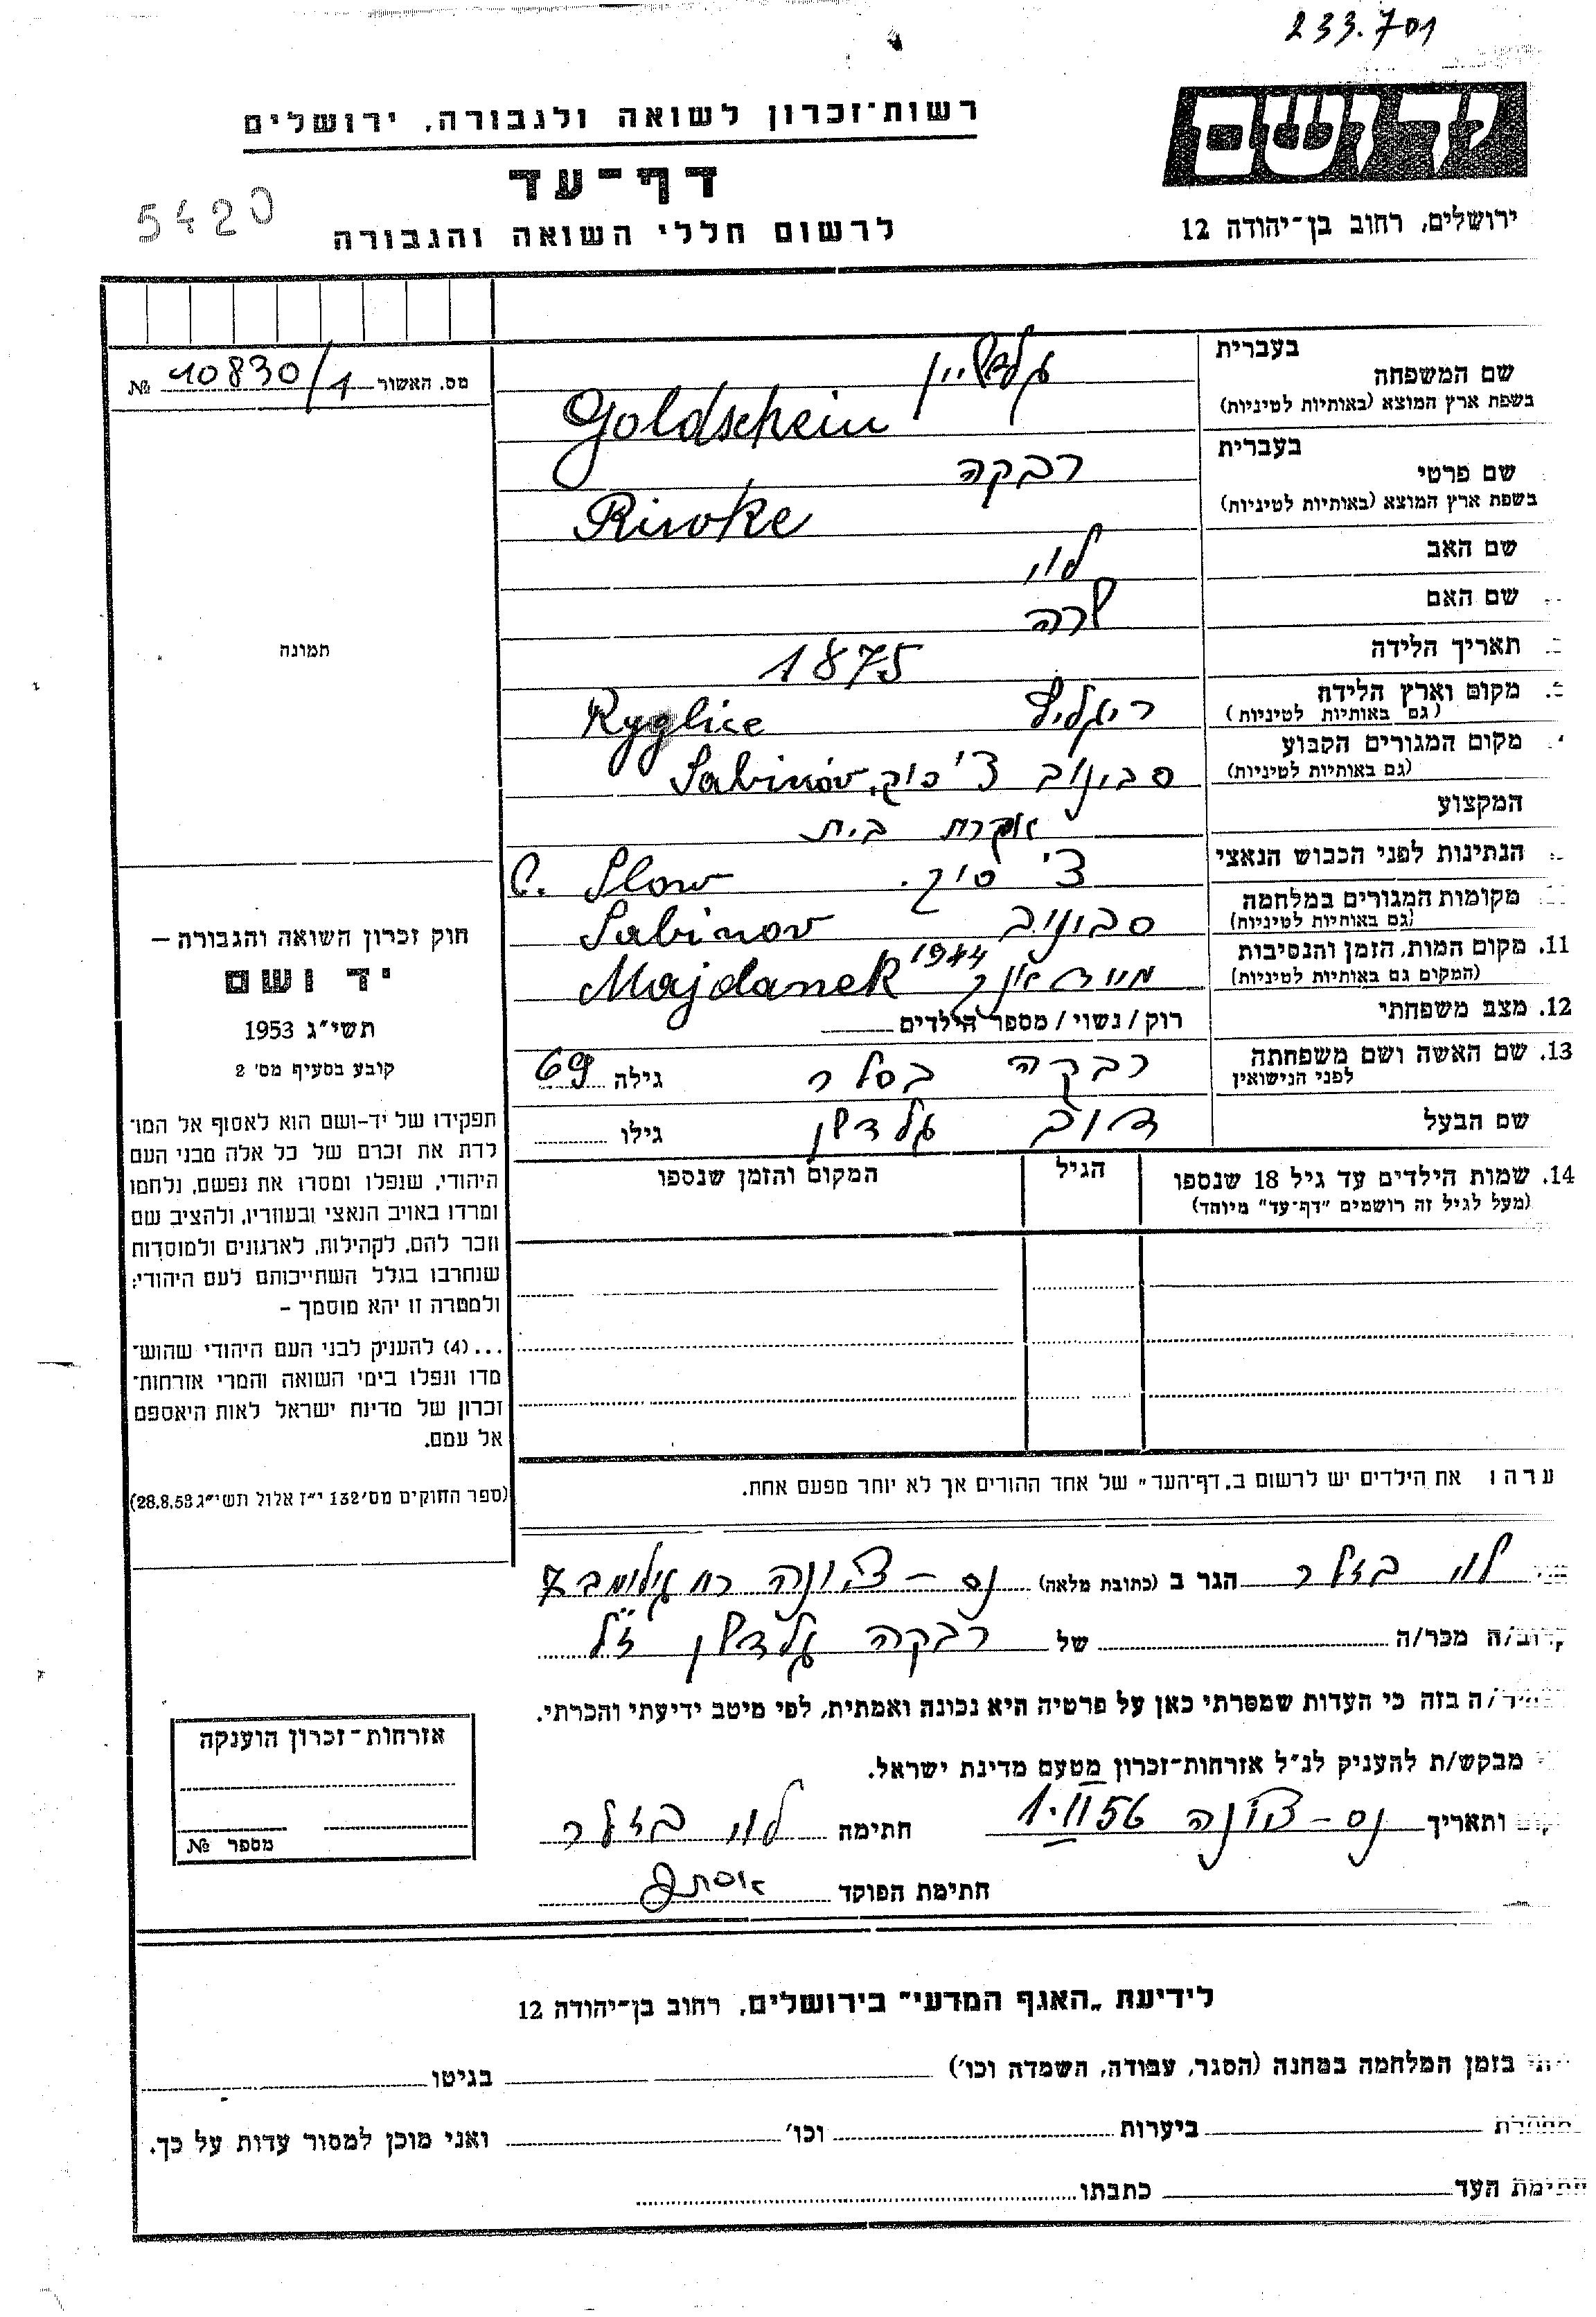 233.701
יד ושם
רשות-זכרון לשואה ולגבורה, ירושלים
דף-עד
5420
לרשום חללי השואה והגבורה
ירושלים, רחוב בן-יהודה 12
מס. האשור 10830/1 №
תמונה
בעברית
שם המשפחה גולדשיין
בשפת ארץ המוצא (באותיות לטיניות) Goldschein
בעברית
שם פרטי רבקה
בשפת ארץ המוצא (באותיות לטיניות) Riwke
שם האב לוי
שם האם שרה
תאריך הלידה 1875
מקום וארץ הלידה ריגליץ Ryglice
(גם באותיות לטיניות)
מקום המגורים הקבוע סבינוב צ'כוסל. Sabinóv
(גם באותיות לטיניות)
המקצוע עקרת בית
הנתינות לפני הכבוש הנאצי צ' סלוב. C. Slow
מקומות המגורים במלחמה סבינוב Sabinov
(גם באותיות לטיניות)
11. מקום המות, הזמן והנסיבות מיידאנק 1944 Majdanek
(המקום גם באותיות לטיניות)
12. מצב משפחתי רוק/נשוי/מספר הילדים
13. שם האשה ושם משפחתה רבקה בסלר גילה 69
לפני הנישואין
שם הבעל דוב גולדשין גילו
14. שמות הילדים עד גיל 18 שנספו הגיל המקום והזמן שנספו
(מעל לגיל זה רושמים "דף-עד" מיוחד)
הערה: את הילדים יש לרשום ב„דף-העד" של אחד ההורים אך לא יותר מפעם אחת.
חוק זכרון השואה והגבורה —
יד ושם
תשי"ג 1953
קובע בסעיף מס' 2
תפקידו של יד-ושם הוא לאסוף אל המו־
לדת את זכרם של כל אלה מבני העם
היהודי, שנפלו ומסרו את נפשם, נלחמו
ומרדו באויב הנאצי ובעוזריו, ולהציב שם
וזכר להם, לקהילות, לארגונים ולמוסדות
שנחרבו בגלל השתייכותם לעם היהודי;
ולמטרה זו יהא מוסמך —
...(4) להעניק לבני העם היהודי שהוש־
מדו ונפלו בימי השואה והמרי אזרחות־
זכרון של מדינת ישראל לאות היאספם
אל עמם.
(ספר החוקים מס' 132 י"ז אלול תשי"ג 28.8.53)
לוי בזלר הגר ב (כתובת מלאה) נס-ציונה רח
קרוב/ה מכר/ה של רבקה גולדשין ז"ל
מצהיר/ה בזה כי העדות שמסרתי כאן על פרטיה היא נכונה ואמתית, לפי מיטב ידיעתי והכרתי.
מבקש/ת להעניק לנ"ל אזרחות-זכרון מטעם מדינת ישראל.
מקום ותאריך נס-ציונה 1.II 56 חתימה לוי בזלר
חתימת הפוקד
אזרחות-זכרון הוענקה
מספר №
לידיעת „האגף המדעי" בירושלים, רחוב בן-יהודה 12
הייתי בזמן המלחמה במחנה (הסגר, עבודה, השמדה וכו') בגיטו
במחתרת ביערות וכו' ואני מוכן למסור עדות על כך.
חתימת העד כתבתו